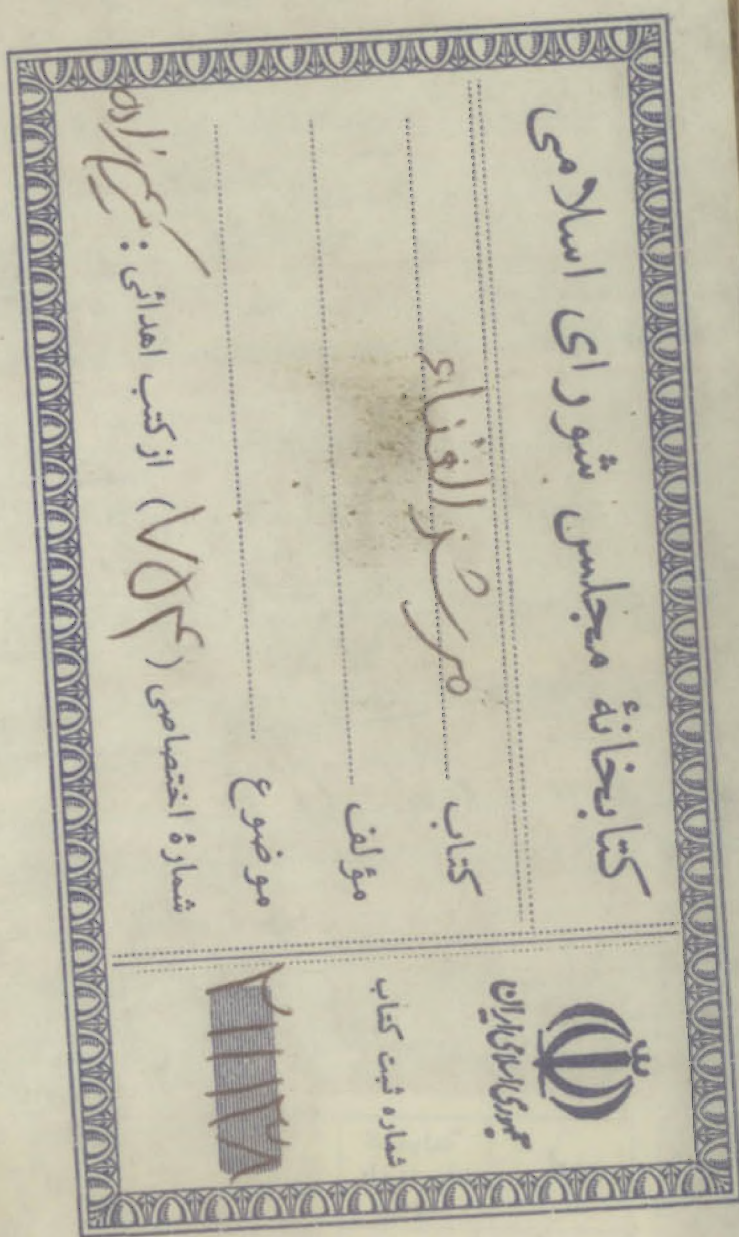 کتابخانهٔ مجلس شورای اسلامی
کتاب مرشد الغناء
مؤلف
موضوع
شمارهٔ اختصاصی (۷۵۴) از کتب اهدائی :
جمهوری اسلامی ایران
شماره ثبت کتاب